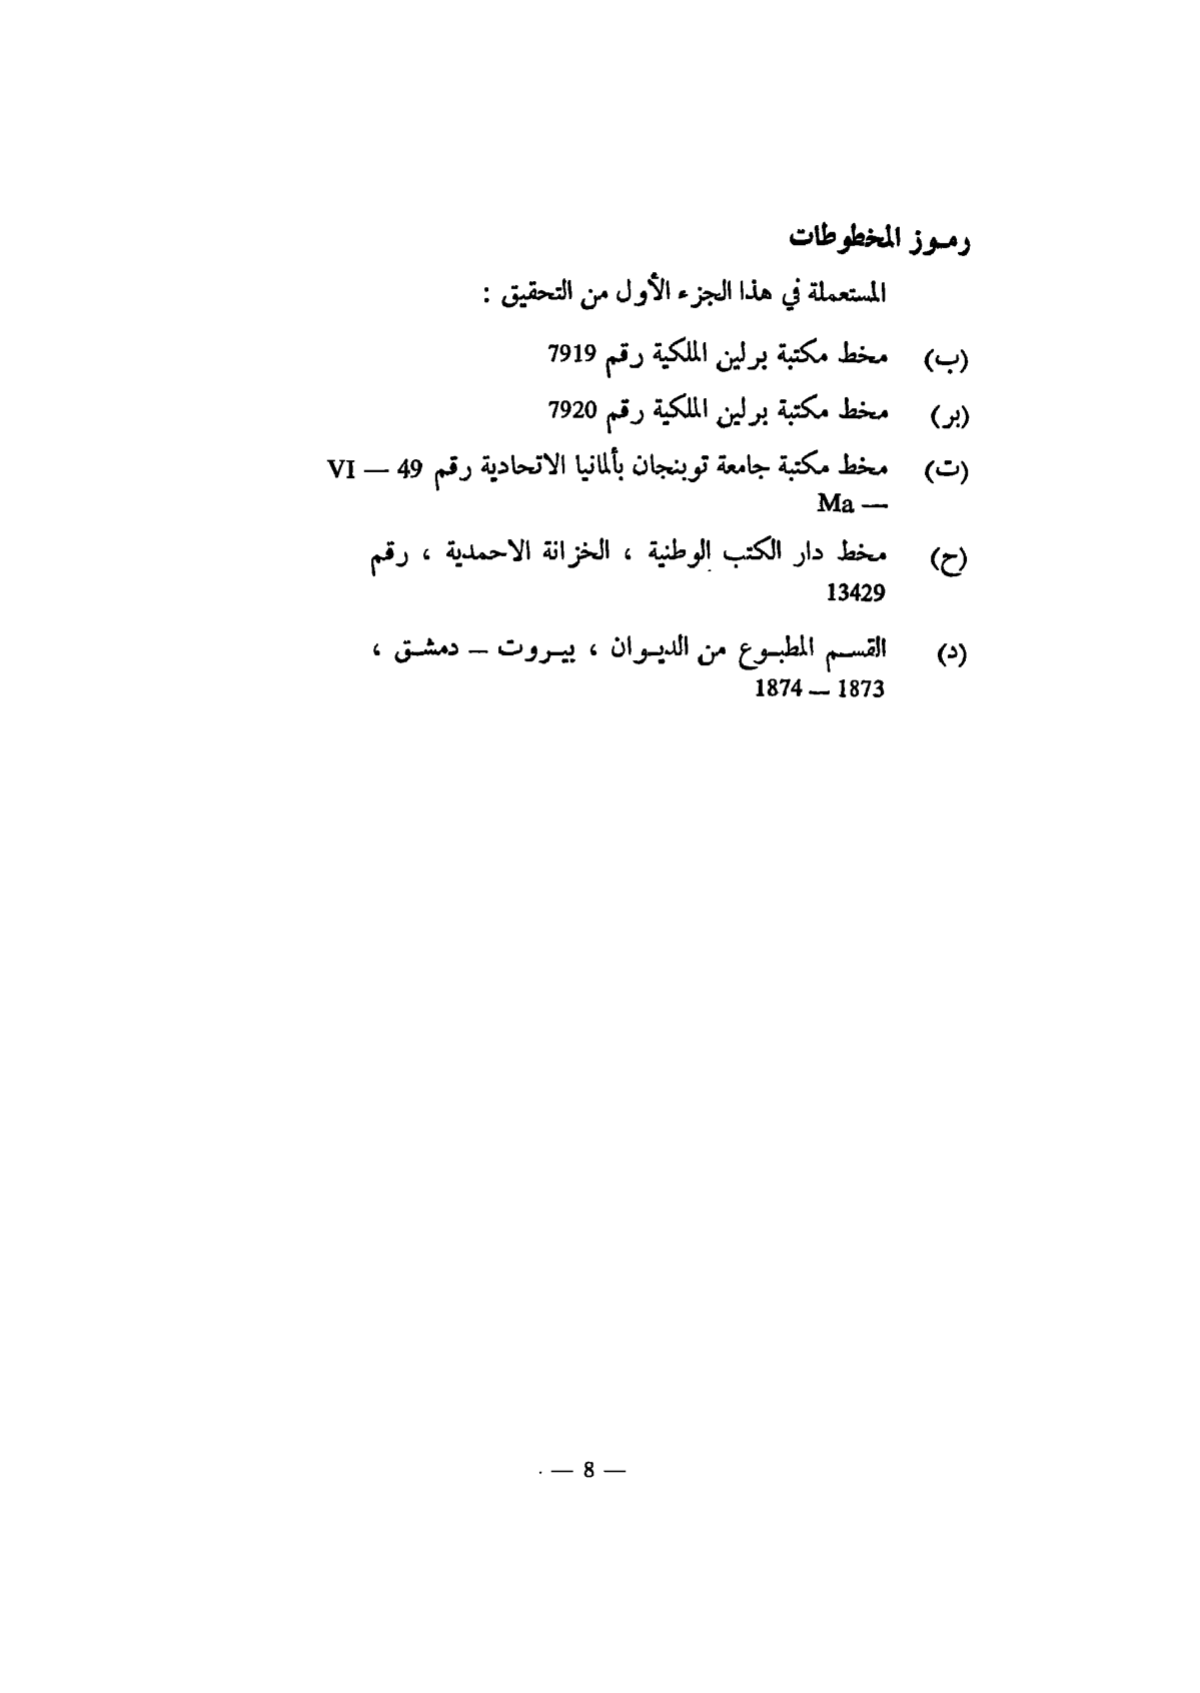 رموز المخطوطات
المستعملة في هذا الجزء الأول من التحقيق :
(ب) مخط مكتبة برلين الملكية رقم 7919
(بر) مخط مكتبة برلين الملكية رقم 7920
(ت) مخط مكتبة جامعة توبنجان بألمانيا الاتحادية رقم 49 — VI
— Ma
(ح) مخط دار الكتب الوطنية ، الخزانة الاحمدية ، رقم
13429
(د) القسم المطبوع من الديوان ، بيروت — دمشق ،
1873 — 1874
— 8 —